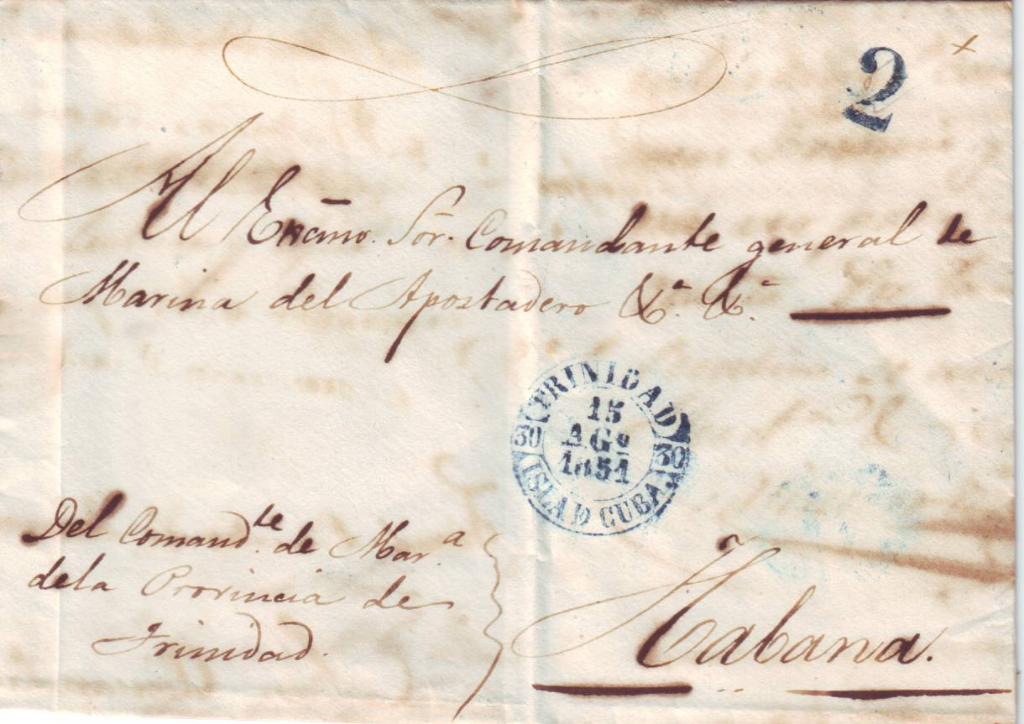 2
Al Excmo. Sor. Comandante general de
Marina del Apostadero &a. &a.
TRINIDAD
15
AGo
1851
30 30
ISLA D CUBA
Del Comandte. de Mara.
dela Provincia de
Trinidad.
Habana.